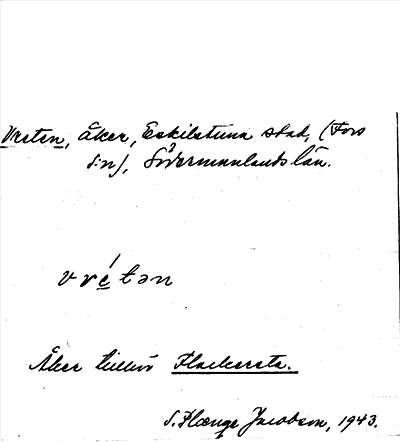 Vreten, åker, Eskilstuna stad, (Fors
s:n), Södermanlands län.
vré̱tən
Åker tillhör Flackersta.
S. Plænge Jacobson, 1943.